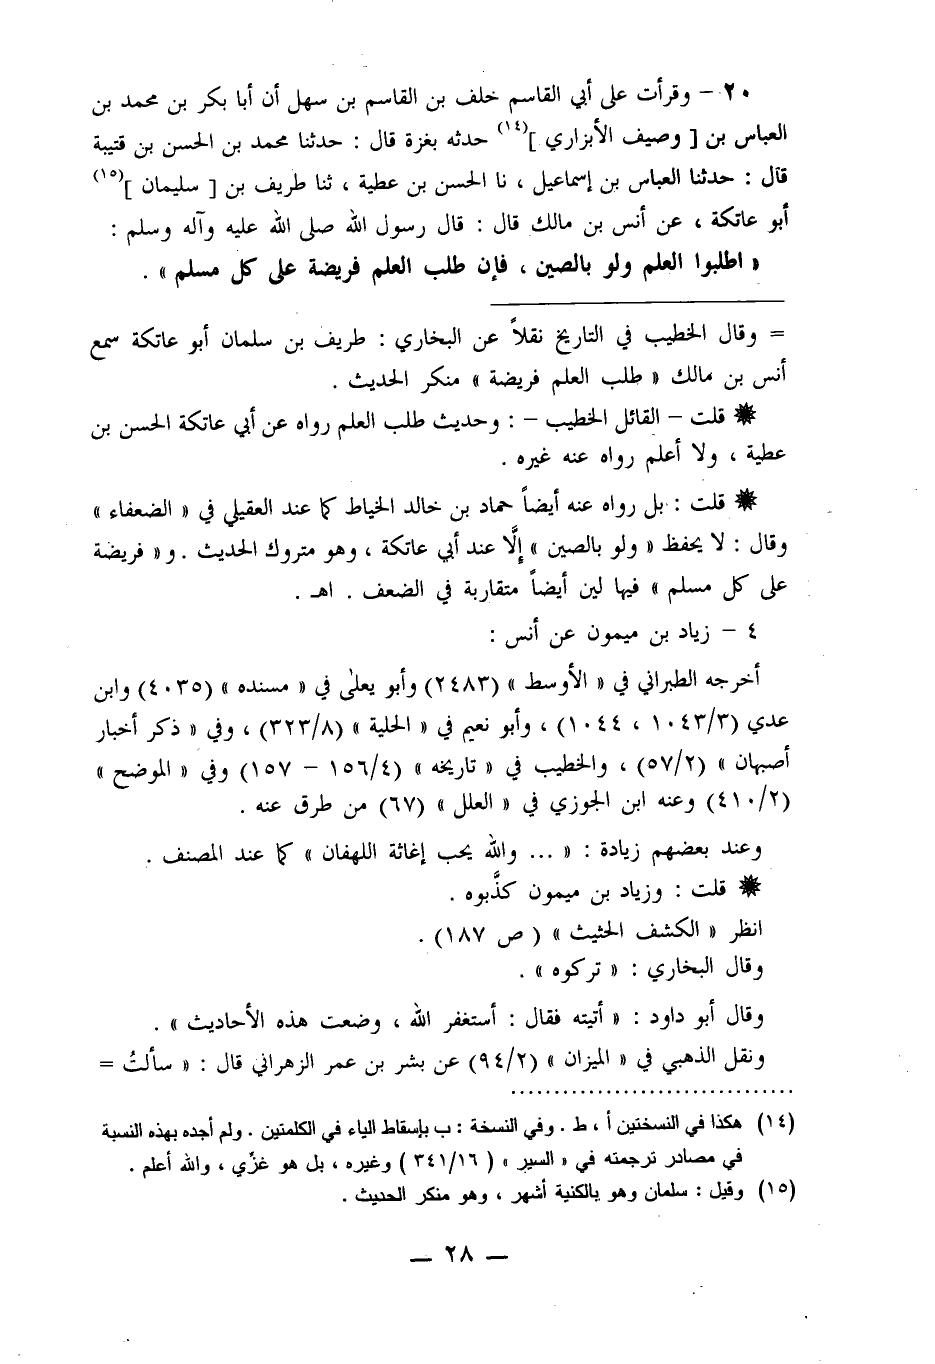 ٢٠ – وقرأت على أبي القاسم خلف بن القاسم بن سهل أن أبا بكر بن محمد بن
العباس بن [ وصيف الأبزاري ](١٤) حدثه بغزة قال : حدثنا محمد بن الحسن بن قتيبة
قال : حدثنا العباس بن إسماعيل ، نا الحسن بن عطية ، ثنا طريف بن [ سليمان ](١٥)
أبو عاتكة ، عن أنس بن مالك قال : قال رسول الله صلى الله عليه وآله وسلم :
« اطلبوا العلم ولو بالصين ، فإن طلب العلم فريضة على كل مسلم » .
= وقال الخطيب في التاريخ نقلاً عن البخاري : طريف بن سلمان أبو عاتكة سمع
أنس بن مالك « طلب العلم فريضة » منكر الحديث .
✹ قلت – القائل الخطيب – : وحديث طلب العلم رواه عن أبي عاتكة الحسن بن
عطية ، ولا أعلم رواه عنه غيره .
✹ قلت : بل رواه عنه أيضاً حماد بن خالد الخياط كما عند العقيلي في « الضعفاء »
وقال : لا يحفظ « ولو بالصين » إلَّا عند أبي عاتكة ، وهو متروك الحديث . و« فريضة
على كل مسلم » فيها لين أيضاً متقاربة في الضعف . اهـ .
٤ – زياد بن ميمون عن أنس :
أخرجه الطبراني في « الأوسط » (٢٤٨٣) وأبو يعلى في « مسنده » (٤٠٣٥) وابن
عدي (١٠٤٣/٣ ، ١٠٤٤) ، وأبو نعيم في « الحلية » (٣٢٣/٨) ، وفي « ذكر أخبار
أصبهان » (٥٧/٢) ، والخطيب في « تاريخه » (١٥٦/٤ – ١٥٧) وفي « الموضح »
(٤١٠/٢) وعنه ابن الجوزي في « العلل » (٦٧) من طرق عنه .
وعند بعضهم زيادة : « ... والله يحب إغاثة اللهفان » كما عند المصنف .
✹ قلت : وزياد بن ميمون كذَّبوه .
انظر « الكشف الحثيث » ( ص ١٨٧) .
وقال البخاري : « تركوه » .
وقال أبو داود : « أتيته فقال : أستغفر الله ، وضعت هذه الأحاديث » .
ونقل الذهبي في « الميزان » (٩٤/٢) عن بشر بن عمر الزهراني قال : « سألتُ =
(١٤) هكذا في النسختين أ ، ط . وفي النسخة : ب بإسقاط الياء في الكلمتين . ولم أجده بهذه النسبة
في مصادر ترجمته في « السير » ( ٣٤١/١٦ ) وغيره ، بل هو غزّي ، والله أعلم .
(١٥) وقيل : سلمان وهو بالكنية أشهر ، وهو منكر الحديث .
— ٢٨ —